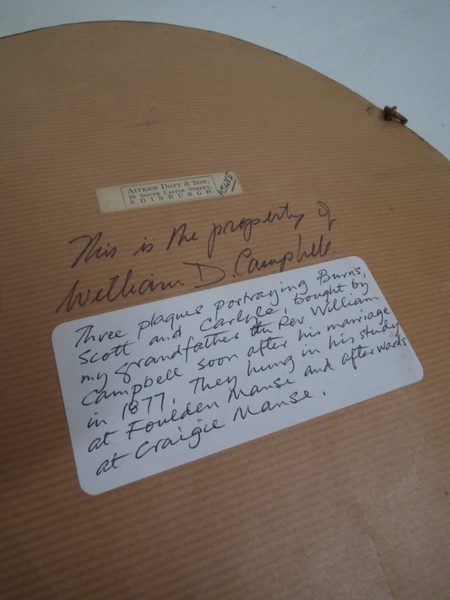 AITKEN DOTT & SON,
26 SOUTH CASTLE STREET,
EDINBURGH
This is the property of
William D. Campbell.
Three plaques portraying Burns,
Scott and Carlyle, bought by
my grandfather the Rev William
Campbell soon after his marriage
in 1877. They hung in his study
at Foulden Manse and afterwards
at Craigie Manse.